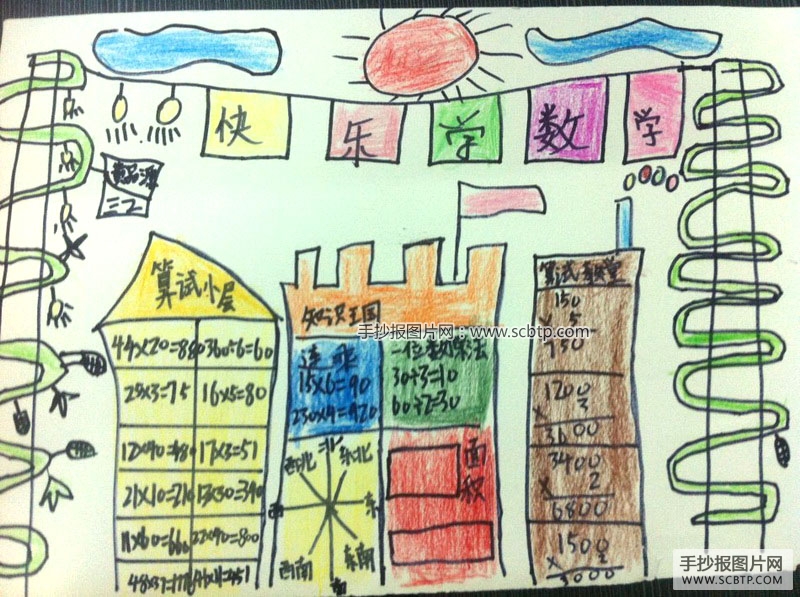 快 乐 学 数 学
三2
算试小屋
44×20=880 360÷6=60
25×3=75 16×5=80
12×40=480 17×3=51
21×10=210 13×30=390
11×60=660 22×40=800
知识王国
连乘
15×6=90
230×4=920
一位数除法
30÷3=10
60÷2=30
北
西北 东北
西 东
西南 东南
南
面积
算式教堂
150
× 5
750
1200
× 3
3600
3400
× 2
6800
1500
× 2
3000
手抄报图片网：www.scbtp.com
手抄报图片网
WWW.SCBTP.COM